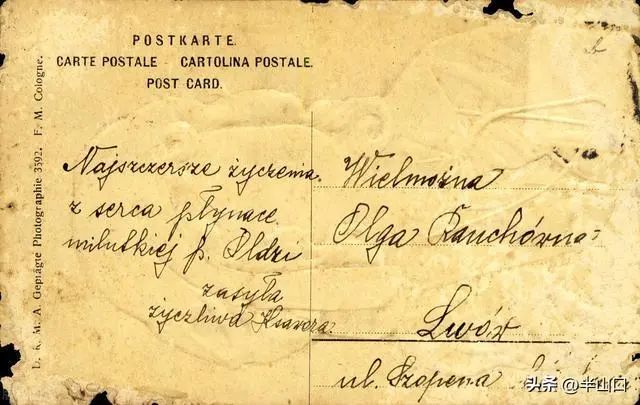 POSTKARTE.
CARTE POSTALE - CARTOLINA POSTALE.
POST CARD.
D. R. M. A Geprägte Photographie 3592. F. M. Cologne.
Najszczersze życzenia
z serca płynące
milutkiej p. Oldzi
zasyła
życzliwa Ksawera
Wielmożna
Olga Rauchówna
Lwów
ul. Szopena
头条 @半山口